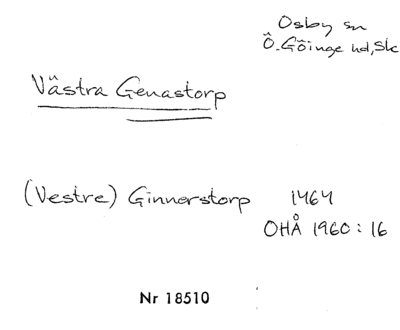 Osby sn
Ö. Göinge hd, Sk
Västra Genastorp
(Vestre) Ginnerstorp 1464
OHÅ 1960:16
Nr 18510